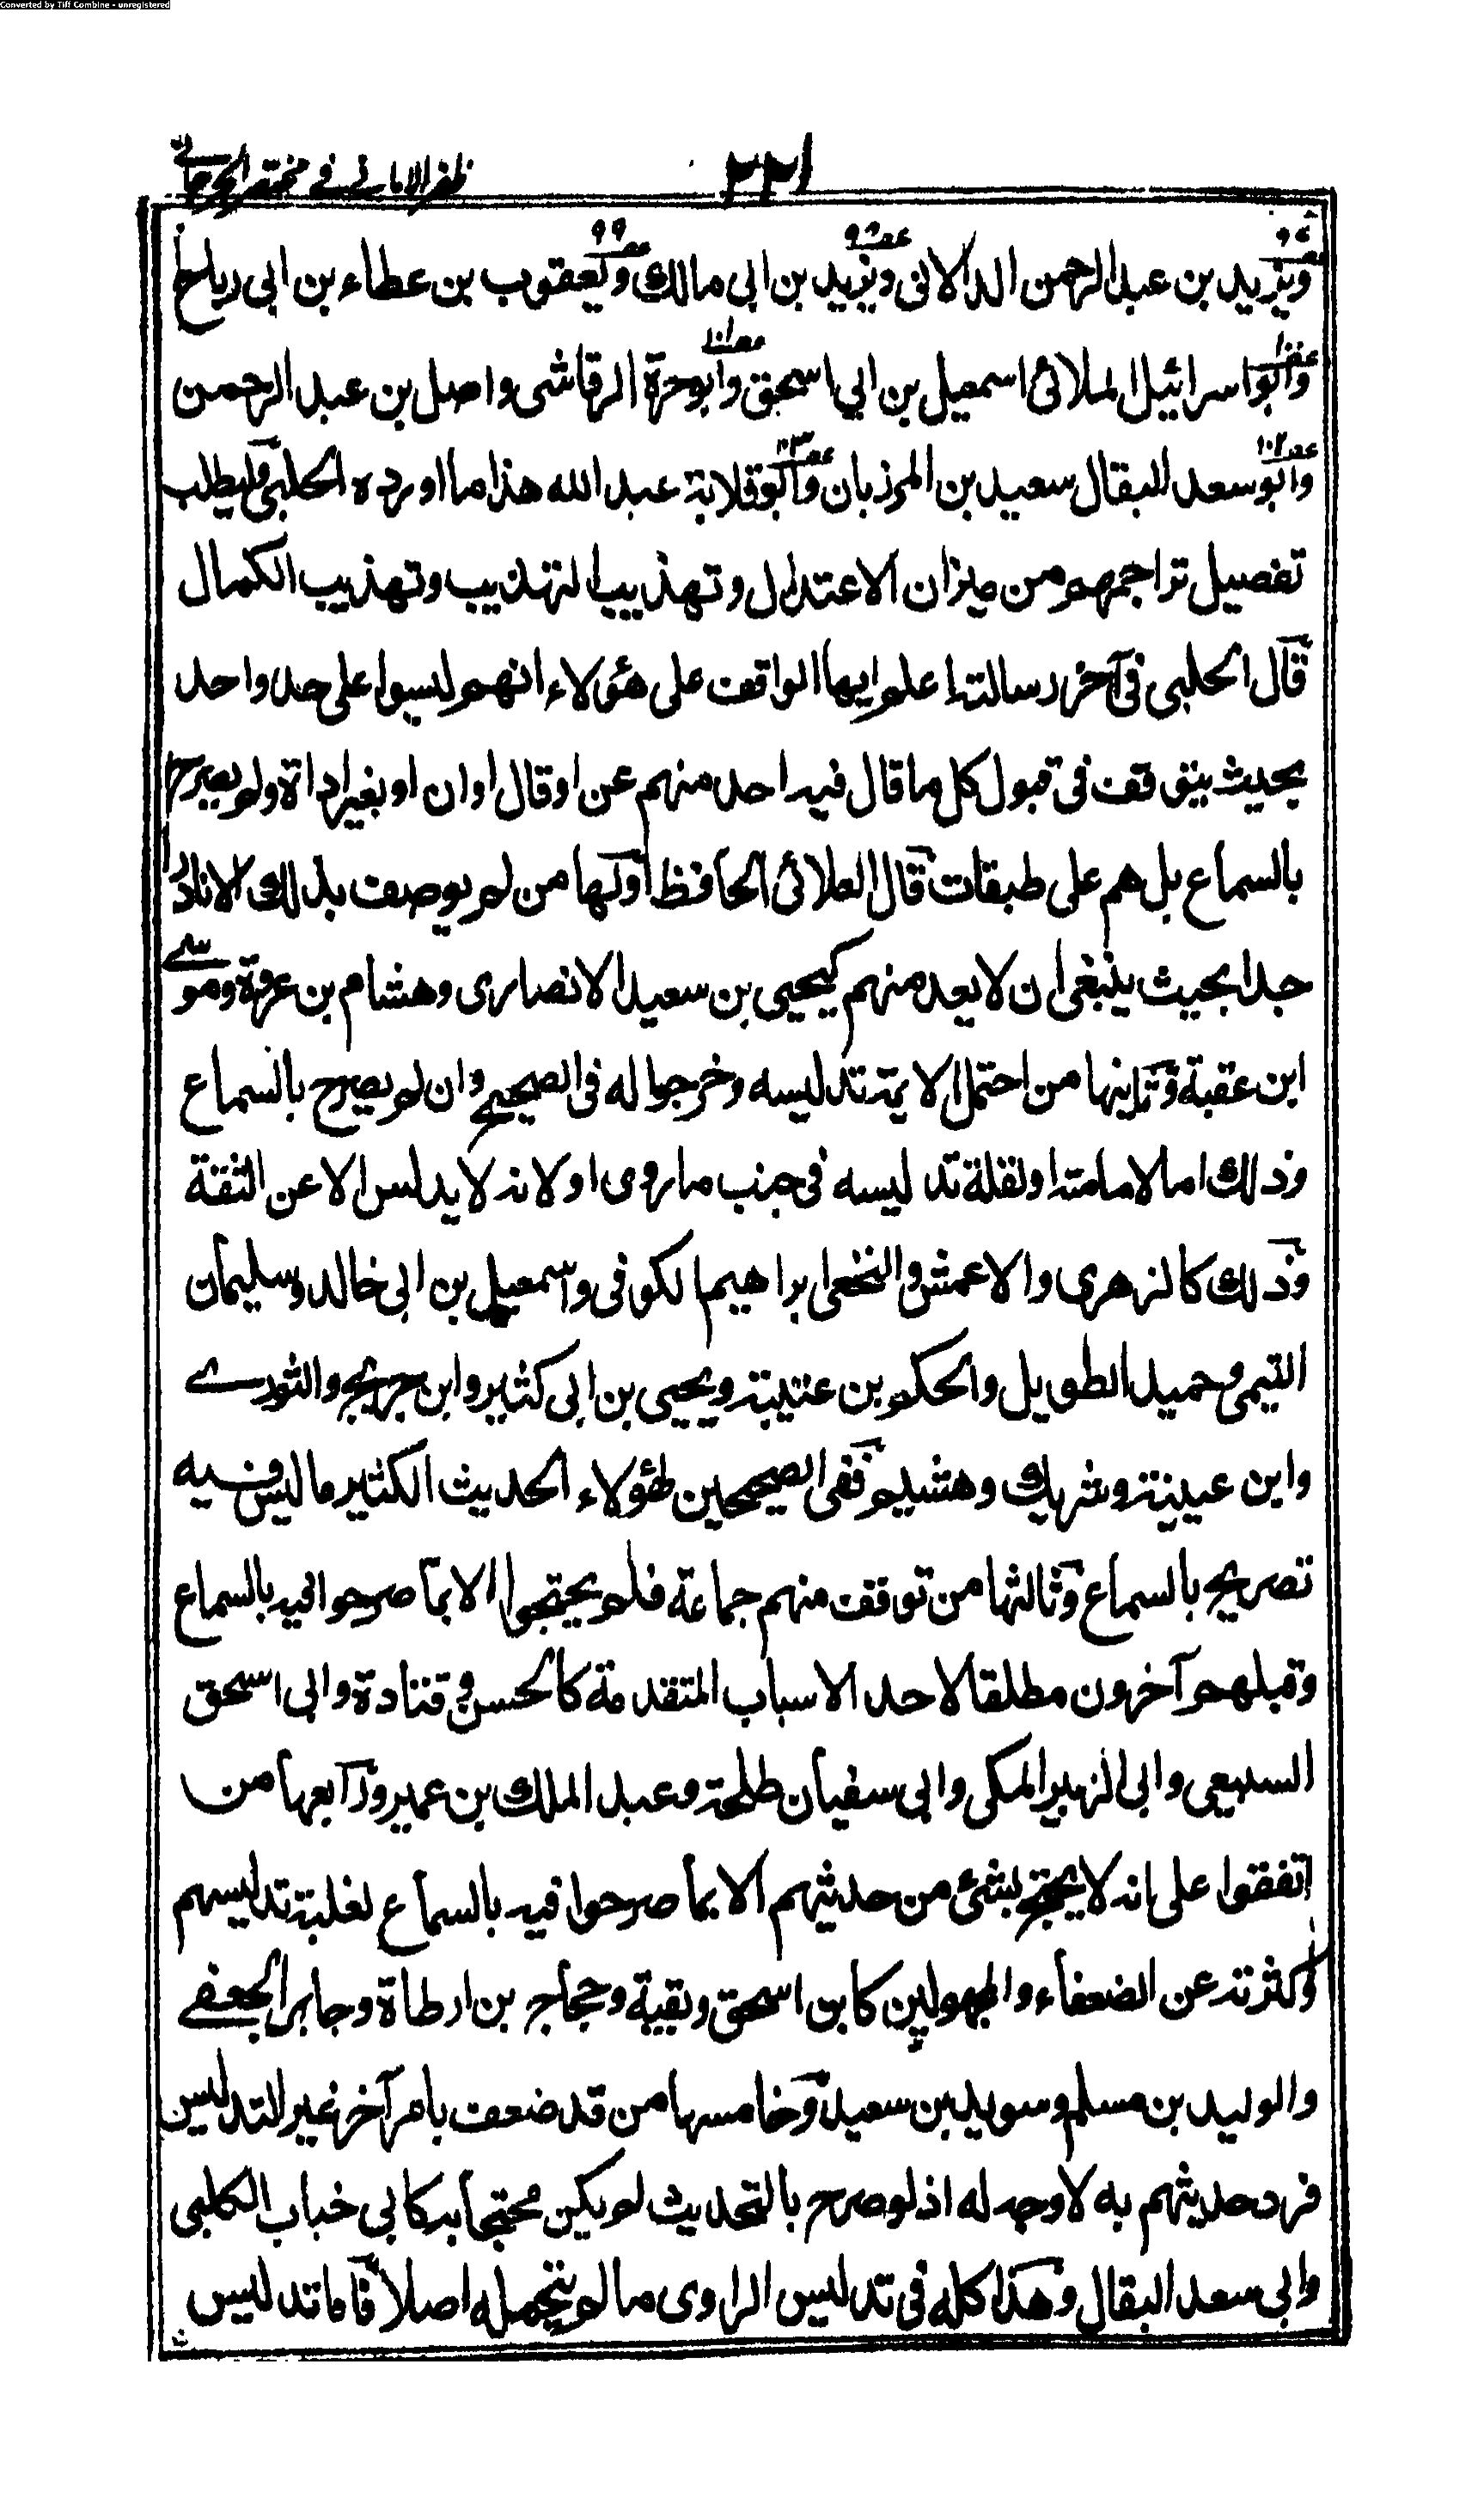 Converted by Tiff Combine - unregistered
ظفر الاماني في مختصر الجرجاني
٢٢١
ويزيد بن عبد الرحمن الدالاني ويزيد بن ابي مالك ويعقوب بن عطاء بن ابي رياح
وابو اسرائيل الملائي اسمعيل بن ابي اسحق وابو حرة الرقاشي واصل بن عبد الرحمن
وابو سعد البقال سعيد بن المرزبان وابو قلابة عبد الله هذا ما اورده الحلبي فليطلب
تفصيل تراجمهم من ميزان الاعتدال وتهذيب التهذيب وتهذيب الكمال
قال الحلبي في آخر رسالته اعلم ايها الواقف على هؤلاء انهم ليسوا على حد واحد
بحيث يتوقف في قبول كل ما قال فيه احد منهم عن او قال او ان او بغير اداة ولم يصرح
بالسماع بل هم على طبقات قال العلائي الحافظ اولها من لم يوصف بذلك الا نادرا
جدا بحيث ينبغي ان لا يعد منهم كيحيى بن سعيد الانصاري وهشام بن عروة وموسى
ابن عقبة وثانيها من احتمل الائمة تدليسه وخرجوا له في الصحيح وان لم يصرح بالسماع
وذلك اما لامامته او لقلة تدليسه في جنب ما روى او لانه لا يدلس الا عن الثقة
وذلك كالزهري والاعمش والنخعي ابراهيم الكوفي واسمعيل بن ابي خالد وسليمان
التيمي وحميد الطويل والحكم بن عتيبة ويحيى بن ابي كثير وابن جريج والثوري
وابن عيينة وشريك وهشيم ففي الصحيحين لهؤلاء الحديث الكثير ما ليس فيه
تصريح بالسماع وثالثها من توقف منهم جماعة فلم يحتجوا الا بما صرحوا فيه بالسماع
وقبلهم آخرون مطلقا لاحد الاسباب المتقدمة كالحسن وقتادة وابي اسحق
السبيعي وابي الزبير المكي وابي سفيان طلحة وعبد الملك بن عمير ورابعها من
اتفقوا على انه لا يحتج بشئ من حديثهم الا بما صرحوا فيه بالسماع لغلبة تدليسهم
وكثرته عن الضعفاء والمجهولين كابن اسحق وبقية وحجاج بن ارطاة وجابر الجعفي
والوليد بن مسلم وسويد بن سعيد وخامسها من قد ضعف بامر آخر غير التدليس
فرد حديثهم به لا وجه له اذ لو صرح بالتحديث لم يكن محتجا به كابي خباب الكلبي
وابي سعد البقال وهذا كله في تدليس الراوي ما لم يتحمله اصلا فاما تدليس